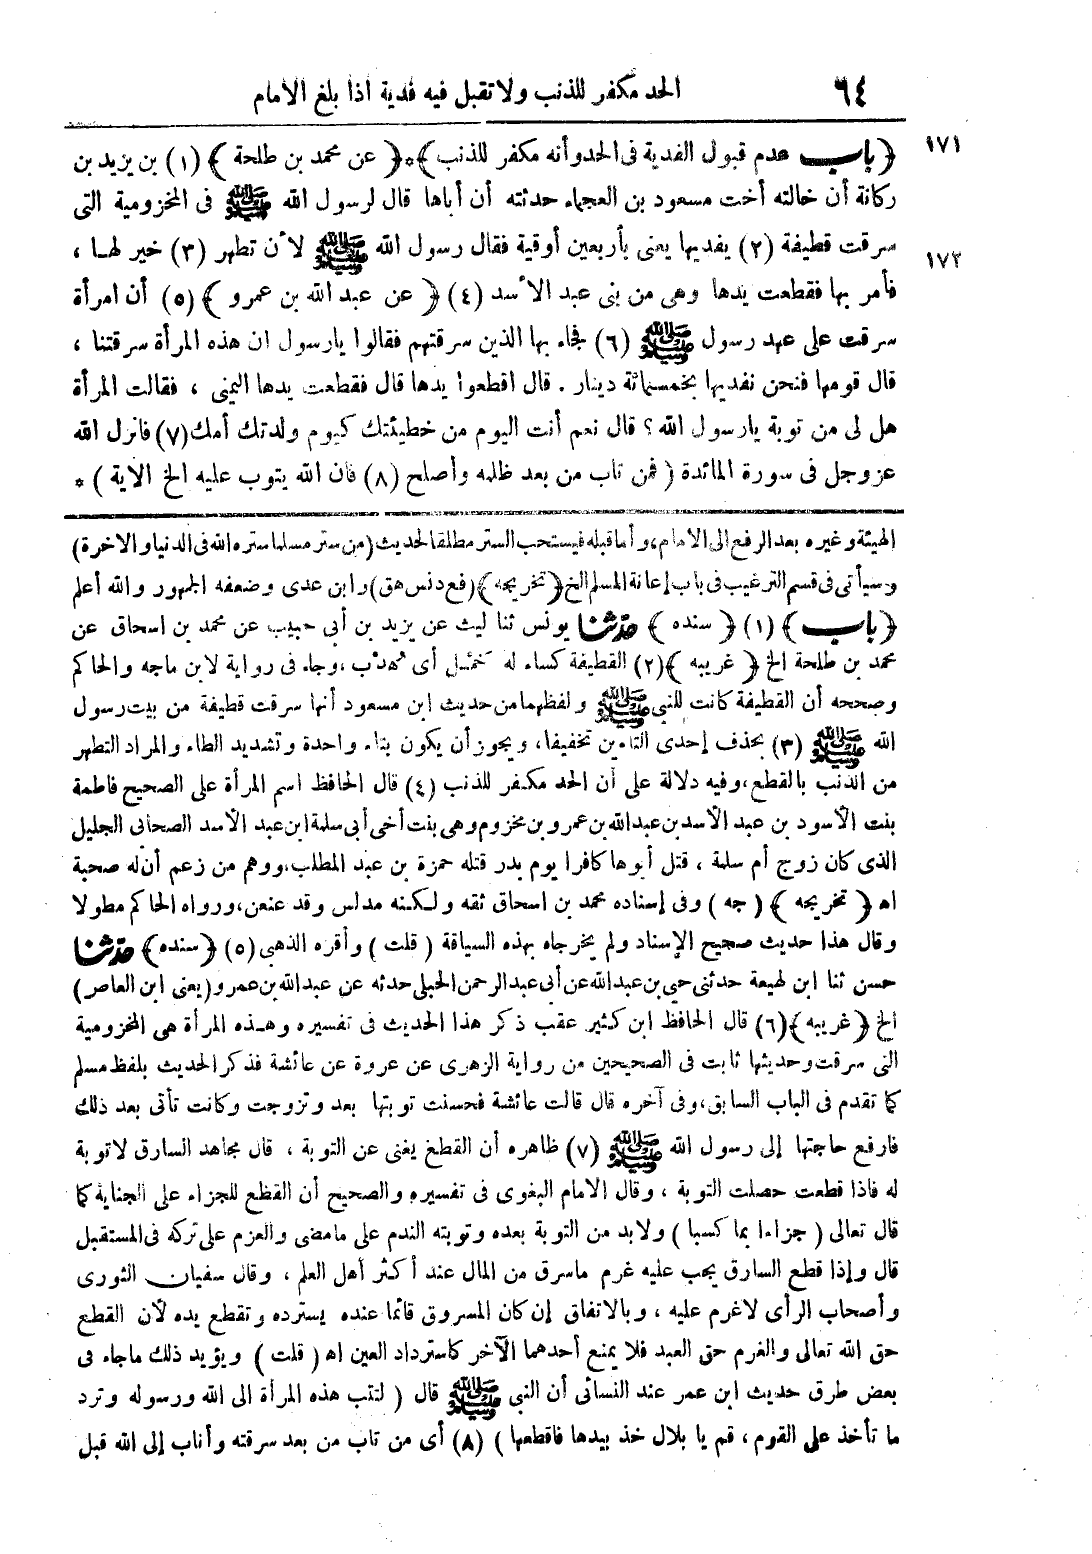 ٦٤ الحد مكفر للذنب ولا تقبل فيه فدية اذا بلغ الامام
١٧١
﴿باب عدم قبول الفدية فى الحد وأنه مكفر للذنب﴾*﴿عن محمد بن طلحة﴾ (١) بن يزيد بن
ركانة أن خالته أخت مسعود بن العجماء حدثته أن أباها قال لرسول الله ﷺ فى المخزومية التى
سرقت قطيفة (٢) يفديها يعنى بأربعين أوقية فقال رسول الله ﷺ لأن تطهر (٣) خير لهـا ،
١٧٢
فأمر بها فقطعت يدها وهى من بنى عبد الأسد (٤) ﴿عن عبد الله بن عمرو﴾ (٥) أن امرأة
سرقت على عهد رسول ﷺ (٦) فجاء بها الذين سرقتهم فقالوا يارسول ان هذه المرأة سرقتنا ،
قال قومها فنحن نفديها بخمسمائة دينار . قال اقطعوا يدها قال فقطعت يدها اليمنى ، فقالت المرأة
هل لى من توبة يارسول الله ؟ قال نعم أنت اليوم من خطيئتك كيوم ولدتك أمك (٧) فانزل الله
عز وجل فى سورة المائدة ( فمن تاب من بعد ظلمه وأصلح (٨) فان الله يتوب عليه الخ الاية ) *
الهيئة وغيره بعد الرفع الى الامام، وأما قبله فيستحب الستر مطلقا لحديث (من ستر مسلما ستره الله فى الدنيا والاخرة)
وسيأتى فى قسم الترغيب فى باب إعانة المسلم الخ ﴿تخريجه﴾ (فع دنس هق) وابن عدى وضعفه الجمهور والله أعلم
﴿باب﴾ (١) ﴿سنده﴾ حدثنا يونس ثنا ليث عن يزيد بن أبى حبيب عن محمد بن اسحاق عن
محمد بن طلحة الخ ﴿غريبه﴾ (٢) القطيفة كساء له خمل أى هدب ، وجاء فى رواية لابن ماجه والحاكم
وصححه أن القطيفة كانت للنبى ﷺ ولفظهما من حديث ابن مسعود أنها سرقت قطيفة من بيت رسول
الله ﷺ (٣) بحذف إحدى التاءين تخفيفا، ويجوز أن يكون بتاء واحدة وتشديد الطاء والمراد التطهر
من الذنب بالقطع، وفيه دلالة على أن الحد مكفر للذنب (٤) قال الحافظ اسم المرأة على الصحيح فاطمة
بنت الأسود بن عبد الأسد بن عبد الله بن عمرو بن مخزوم وهى بنت أخى أبى سلمة ابن عبد الأسد الصحابى الجليل
الذى كان زوج أم سلمة ، قتل أبوها كافرا يوم بدر قتله حمزة بن عبد المطلب، ووهم من زعم أن له صحبة
اه ﴿تخريجه﴾ ( جه ) وفى إسناده محمد بن اسحاق ثقه ولكنه مدلس وقد عنعن، ورواه الحاكم مطولا
وقال هذا حديث صحيح الإسناد ولم يخرجاه بهذه السياقة ( قلت ) وأقره الذهبى (٥) ﴿سنده﴾ حدثنا
حسن ثنا ابن لهيعة حدثنى حيى بن عبد الله عن أبى عبد الرحمن الحبلى حدثه عن عبد الله بن عمرو (يعنى ابن العاص)
الخ ﴿غريبه﴾ (٦) قال الحافظ ابن كثير عقب ذكر هذا الحديث فى تفسيره وهـذه المرأة هى المخزومية
التى سرقت وحديثها ثابت فى الصحيحين من رواية الزهرى عن عروة عن عائشة فذكر الحديث بلفظ مسلم
كما تقدم فى الباب السابق، وفى آخره قال قالت عائشة فحسنت توبتها بعد وتزوجت وكانت تأتى بعد ذلك
فارفع حاجتها إلى رسول الله ﷺ (٧) ظاهره أن القطع يغنى عن التوبة ، قال مجاهد السارق لا توبة
له فاذا قطعت حصلت التوبة ، وقال الامام البغوى فى تفسيره والصحيح أن القطع للجزاء على الجناية كما
قال تعالى ( جزاءا بما كسبا ) ولابد من التوبة بعده وتوبته الندم على مامضى والعزم على تركه فى المستقبل
قال وإذا قطع السارق يجب عليه غرم ماسرق من المال عند أكثر أهل العلم ، وقال سفيان الثورى
وأصحاب الرأى لاغرم عليه ، وبالاتفاق إن كان المسروق قائما عنده يسترده وتقطع يده لأن القطع
حق الله تعالى والغرم حق العبد فلا يمنع أحدهما الآخر كاسترداد العين اه ( قلت ) ويؤيد ذلك ماجاء فى
بعض طرق حديث ابن عمر عند النسائى أن النبى ﷺ قال ( لتتب هذه المرأة الى الله ورسوله وترد
ما تأخذ على القوم ، قم يا بلال خذ بيدها فاقطعها ) (٨) أى من تاب من بعد سرقته وأناب إلى الله قبل